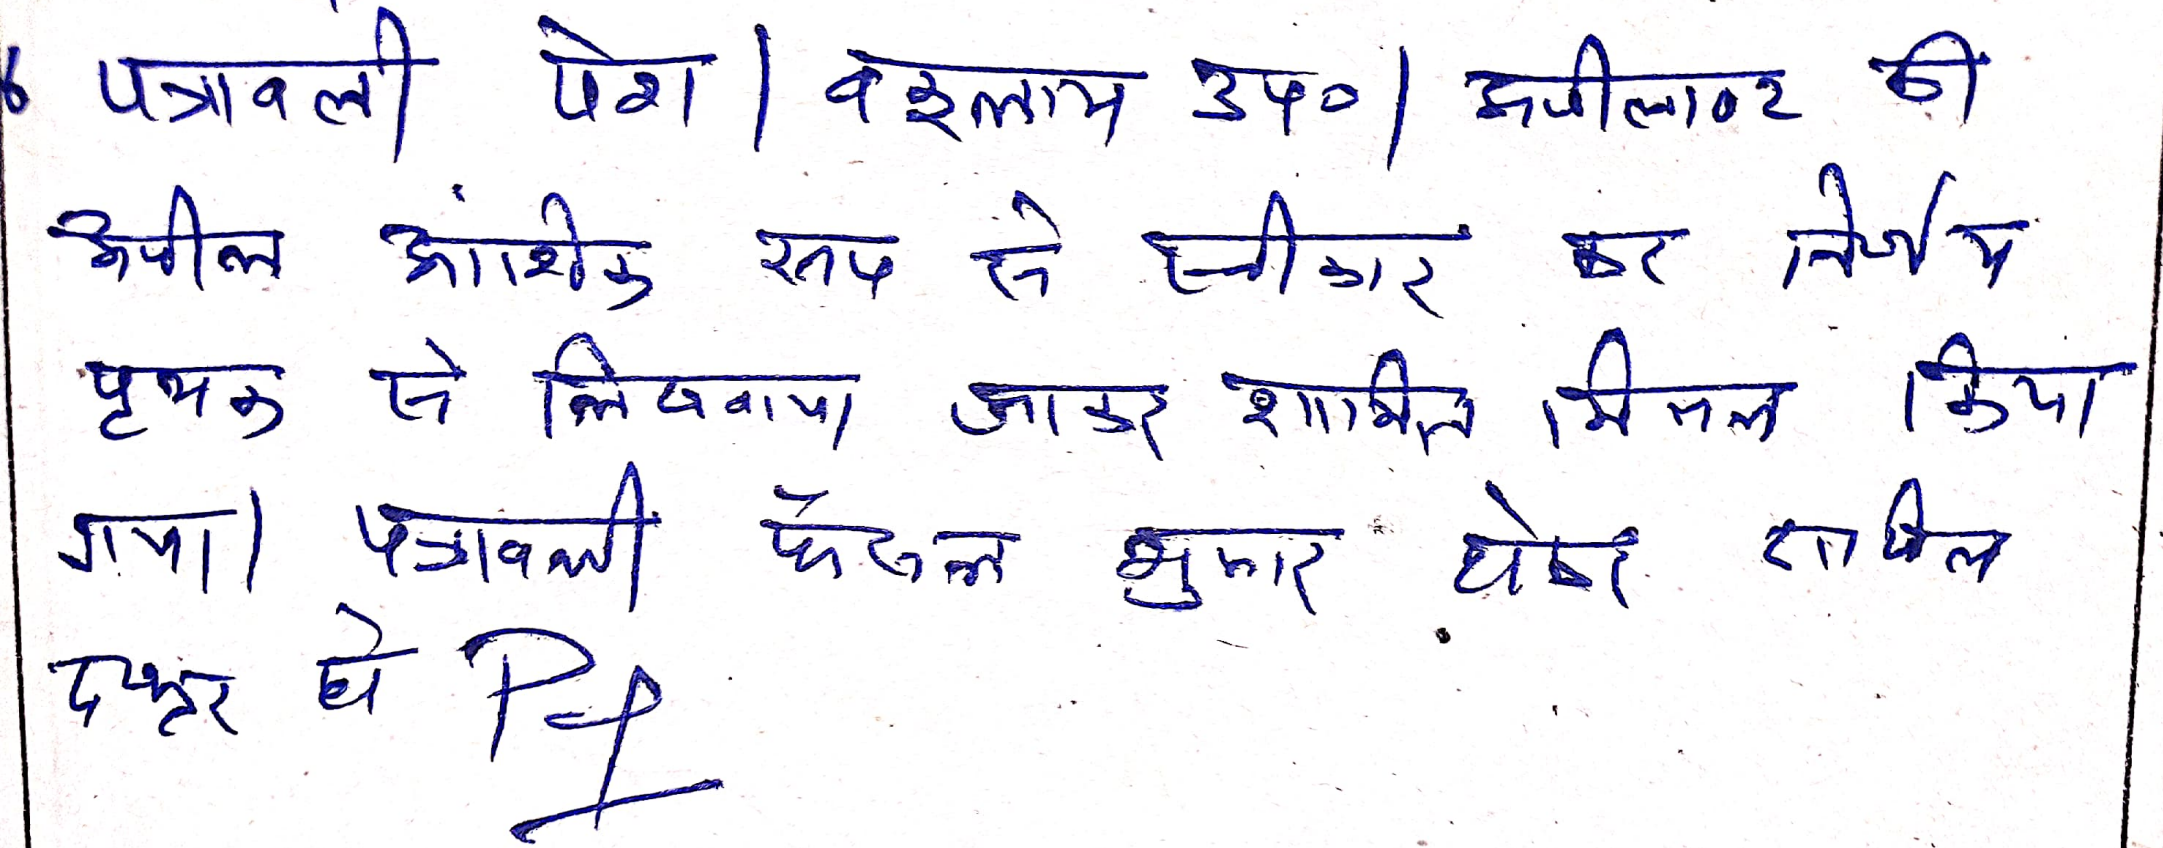 6 पत्रावली पेश। वकुलाय उप०। अपीलाण्ट की
अपील आंशिक रूप से स्वीकार कर निर्णय
पृथक से लिखवाया जाकर शामिल मिसल किया
गया। पत्रावली फैसल शुमार होकर दाखिल
दफ्तर हो